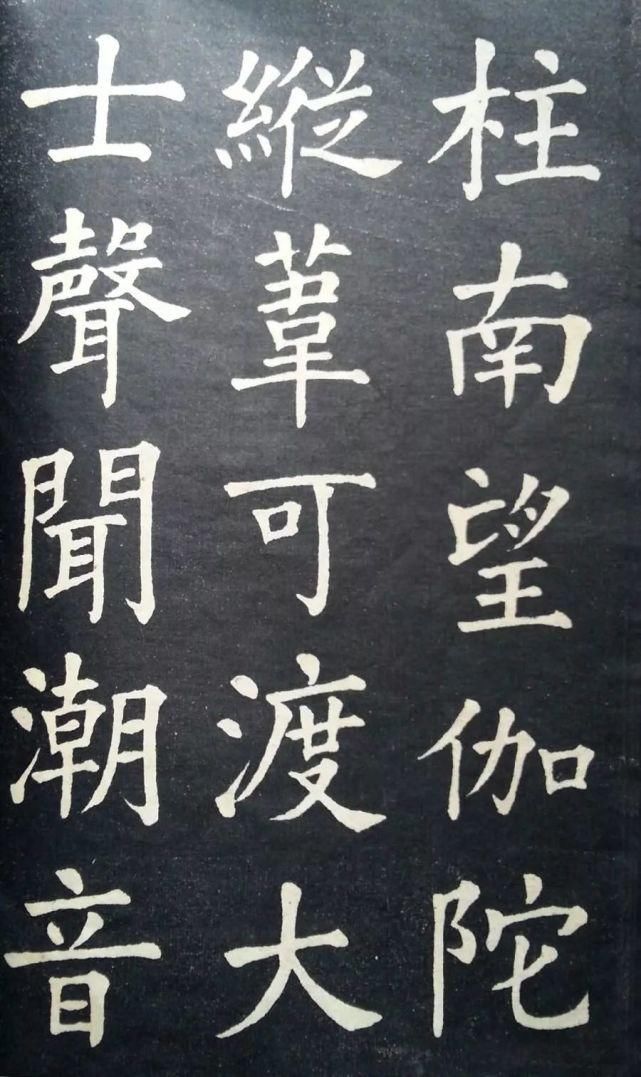 柱南望伽陀
縱葦可渡大
士聲聞潮音